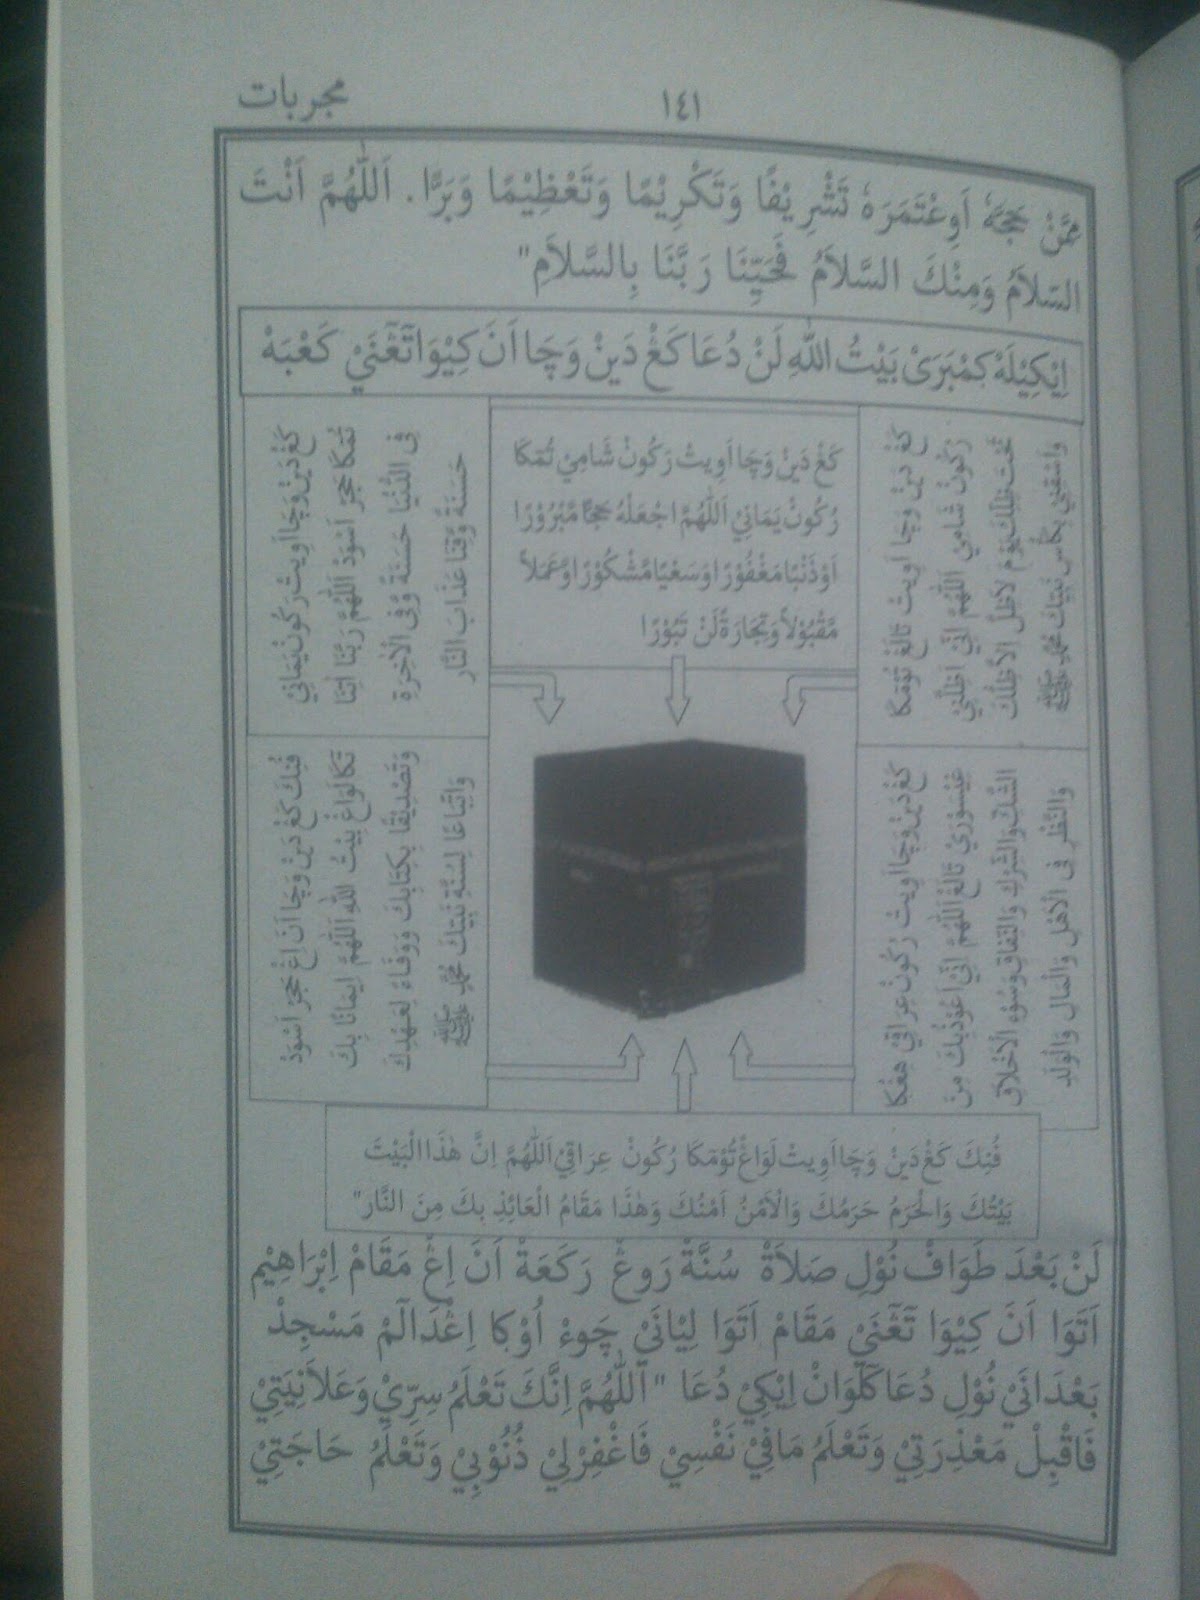 مجربات
١٤١
مِمَّنْ حَجَّهُ اَوِعْتَمَرَهُ تَشْرِيْفًا وَتَكْرِيْمًا وَتَعْظِيْمًا وَبَرًّا. اَللّٰهُمَّ اَنْتَ
السَّلَامُ وَمِنْكَ السَّلَامُ فَحَيِّنَا رَبَّنَا بِالسَّلَامِ"
اِيْكِيْلَهْ كَمْبَرَىْ بَيْتُ اللّٰهِ لَنْ دُعَا كَڠْ دَيْنْ وَچَا اَنَ كِيْوَا تَڠَنَيْ كَعْبَهْ
كَڠْ دَيْنْ وَچَا اَوِيتْ رُكُونْ شَامِيْ تُمَكَا
رُكُونْ يَمَانِيْ اَللّٰهُمَّ اجْعَلْهُ حَجًّا مَّبْرُوْرًا
اَوْذَنْبًا مَغْفُوْرًا وَسَعْيًا مَّشْكُوْرًا وَّعَمَلًا
مَّقْبُوْلًا وَتِجَارَةً لَنْ تَبُوْرَا
كَڠْ دَيْنْ وَچَا اَوِيتْ تَالَڠْ تُوْمَكَا
رُكُونْ شَامِيْ اَللّٰهُمَّ اِنِّيْ اَظِلَّنِيْ
تَحْتَ ظِلِّكَ يَوْمَ لَاظِلَّ اِلَّاظِلُّكَ
وَاسْقِنِيْ بِكَأْسِ نَبِيِّكَ مُحَمَّدٍ ﷺ
كَڠْ دَيْنْ وَچَا اَوِيتْ رُكُونْ يَمَانِيْ
تُمَكَا حَجَرْ اَسْوَدْ اَللّٰهُمَّ رَبَّنَا اٰتِنَا
فِى الدُّنْيَا حَسَنَةً وَّفِى الْاٰخِرَةِ
حَسَنَةً وَّقِنَا عَذَابَ النَّارِ
كَڠْ دَيْنْ وَچَا اَوِيتْ رُكُونْ عِرَاقِيْ
تَالَڠْ اَللّٰهُمَّ اِنِّيْ اَعُوْذُبِكَ مِنَ
الشَّكِّ وَالشِّرْكِ وَالنِّفَاقِ وَسُوْءِ الْاَخْلَاقِ
وَالنَّظَرِ فِى الْاَهْلِ وَالْمَالِ وَالْوَلَدِ
كَڠْ دَيْنْ وَچَا اَنَ اِڠْ حَجَرْ اَسْوَدْ
بَيْتُ اللّٰهِ اَللّٰهُمَّ اِيْمَانًا بِكَ
وَتَصْدِيْقًا بِكِتَابِكَ وَوَفَاءً لِعَهْدِكَ
وَاتِّبَاعًا لِسُنَّةِ نَبِيِّكَ مُحَمَّدٍ ﷺ
كَڠْ دَيْنْ وَچَا اَوِيتْ لَوَاڠْ تُوْمَكَا رُكُونْ عِرَاقِيْ اَللّٰهُمَّ اِنَّ هٰذَا الْبَيْتَ
بَيْتُكَ وَالْحَرَمُ حَرَمُكَ وَالْاَمْنُ اَمْنُكَ وَهٰذَا مَقَامُ الْعَائِذِ بِكَ مِنَ النَّارِ"
لَنْ بَعْدَ طَوَافْ نُوْلِ صَلَاةْ سُنَّةْ رَوڠْ رَكَعَةْ اَنَ اِڠْ مَقَامْ اِبْرَاهِيْمِ
اَتَوَا اَنَ كِيْوَا تَڠَنَيْ مَقَامْ اَتَوَا لِيْيَانَيْ چَوءْ اُوْكَا اِڠْدَالَمْ مَسْجِدْ
بَعْدَانَيْ نُوْلِ دُعَا كَلَوَانْ اِيْكِيْ دُعَا " اَللّٰهُمَّ اِنَّكَ تَعْلَمُ سِرِّيْ وَعَلَانِيَتِيْ
فَاقْبِلْ مَعْذِرَتِيْ وَتَعْلَمُ مَافِيْ نَفْسِيْ فَاغْفِرْلِيْ ذُنُوْبِيْ وَتَعْلَمُ حَاجَتِيْ